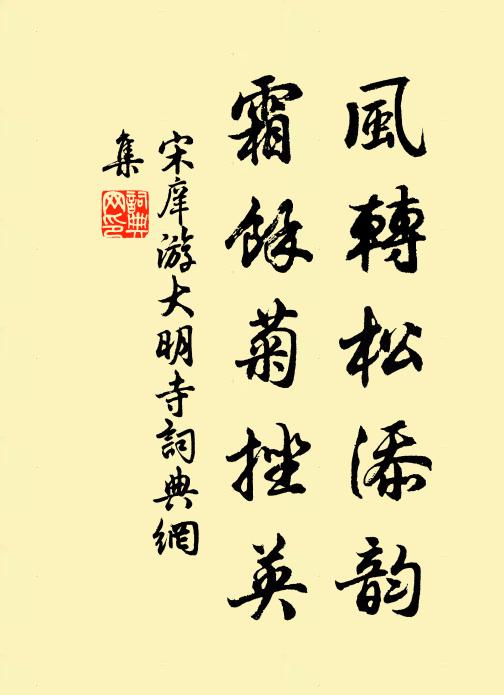 風轉松添韵
霜餘菊挫英
宋庠游大明寺詞典網
集
詞典
网印